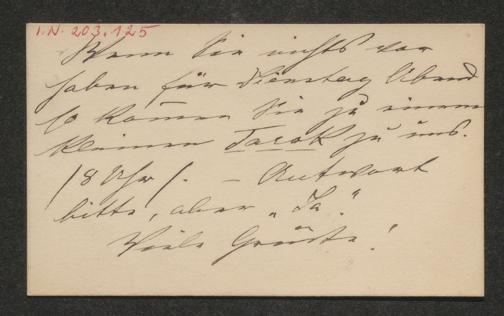 I.N. 203.125
Wenn Sie nichts vor
haben für Dienstag Abend
so kom̄en Sie zu einem
kleinen Tarok zu uns.
/8 Uhr/. – Antwort
bitte, aber „Ja."
Viele Grüße!